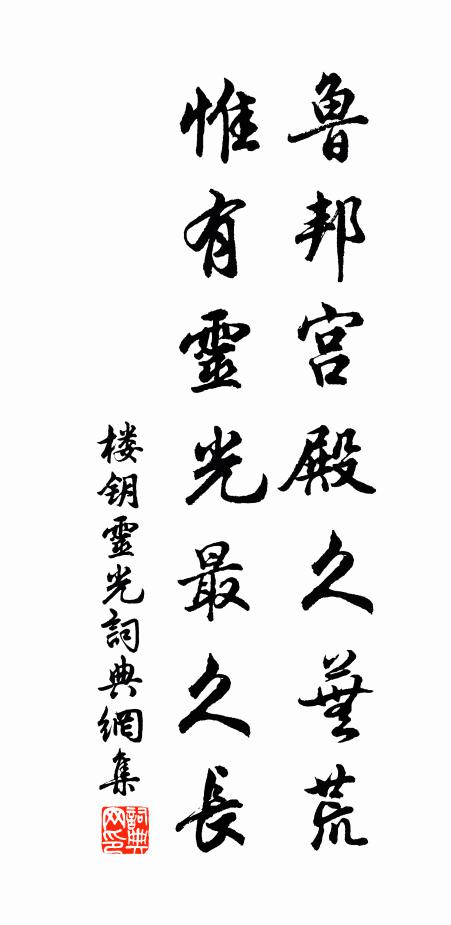 魯邦宫殿久蕪荒
惟有靈光最久長
楼钥靈光詞典網集
詞典网印